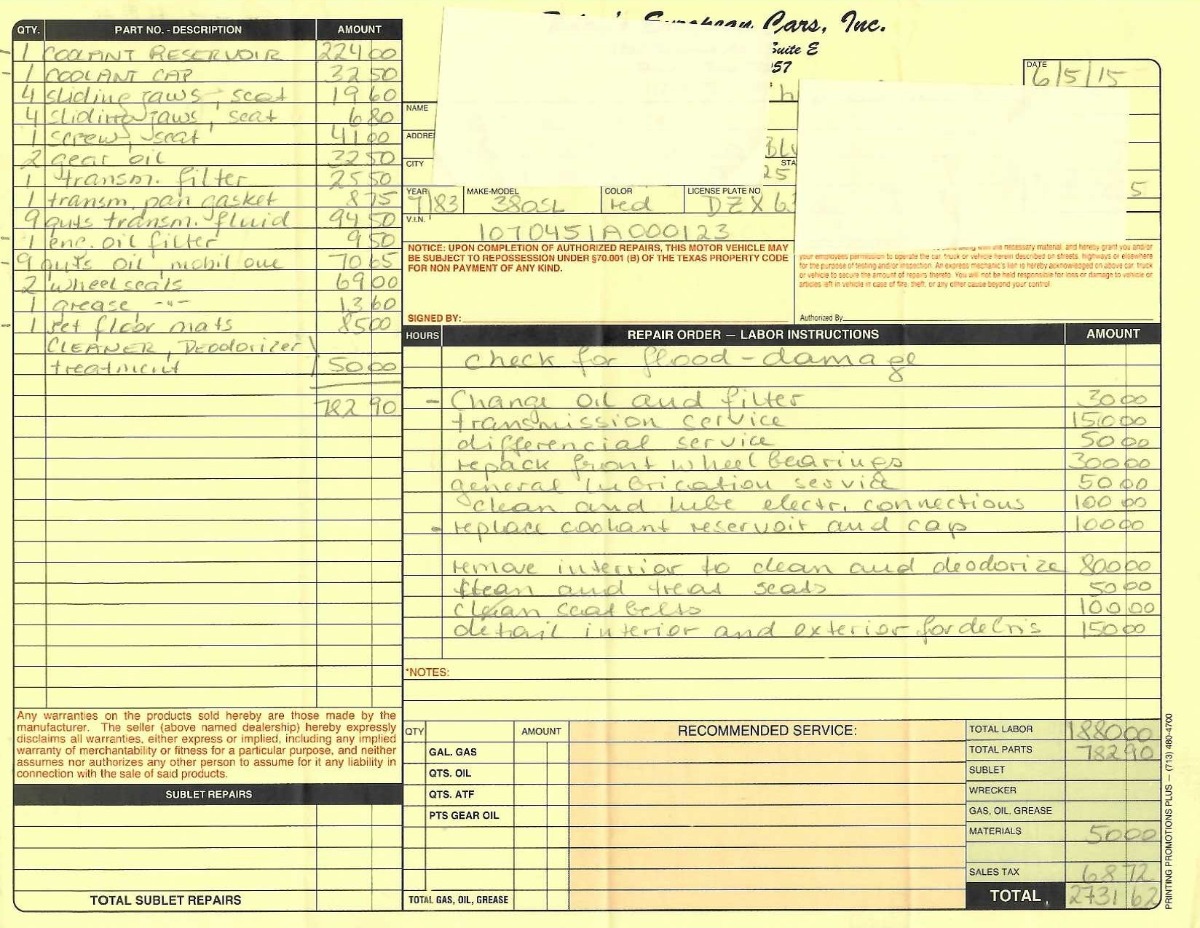 European Cars, Inc.
Suite E
57
DATE 6/5/15
NAME
CITY
STA
25
5
YEAR 9/83 MAKE-MODEL 380SL COLOR red LICENSE PLATE NO. DZX 63
V.I.N. 1070451A000123
NOTICE: UPON COMPLETION OF AUTHORIZED REPAIRS, THIS MOTOR VEHICLE MAY
BE SUBJECT TO REPOSSESSION UNDER §70.001 (B) OF THE TEXAS PROPERTY CODE
FOR NON PAYMENT OF ANY KIND.
SIGNED BY:
necessary material, and hereby grant you and/or
your employees permission to operate the car, truck or vehicle herein described on streets, highways or elsewhere
for the purpose of testing and/or inspection. An express mechanic's lien is hereby acknowledged on above car, truck
or vehicle to secure the amount of repairs thereto. You will not be held responsible for loss or damage to vehicle or
articles left in vehicle in case of fire, theft, or any other cause beyond your control.
Authorized By
QTY. PART NO. - DESCRIPTION AMOUNT
1 COOLANT RESERVOIR 224 00
1 COOLANT CAP 32 50
4 sliding jaws, seat 19 60
4 sliding jaws, seat 6 80
1 screw, seat 41 00
2 gear oil 32 50
1 transm. filter 25 50
1 transm. pan gasket 8 75
9 quts transm. fluid 94 50
1 eng. oil filter 9 50
9 quts oil, mobil one 70 65
2 wheel seals 69 00
1 grease -"- 13 60
1 set floor mats 85 00
CLEANER, DEODORIZER
treatment 50 00
782 90
Any warranties on the products sold hereby are those made by the
manufacturer. The seller (above named dealership) hereby expressly
disclaims all warranties, either express or implied, including any implied
warranty of merchantability or fitness for a particular purpose, and neither
assumes nor authorizes any other person to assume for it any liability in
connection with the sale of said products.
SUBLET REPAIRS
TOTAL SUBLET REPAIRS
HOURS REPAIR ORDER — LABOR INSTRUCTIONS AMOUNT
check for flood-damage
- Change oil and filter 30 00
transmission service 150 00
differencial service 50 00
repack front wheel bearings 300 00
general lubrication service 50 00
clean and lube electr. connections 100 00
- replace coolant reservoir and cap 100 00
remove interrior to clean and deodorize 800 00
clean and treat seats 50 00
clean seatbelts 100 00
detail interior and exterior for delris 150 00
*NOTES:
QTY AMOUNT RECOMMENDED SERVICE:
GAL. GAS
QTS. OIL
QTS. ATF
PTS GEAR OIL
TOTAL GAS, OIL, GREASE
TOTAL LABOR 1880 00
TOTAL PARTS 782 90
SUBLET
WRECKER
GAS, OIL, GREASE
MATERIALS 50 00
SALES TAX 68 72
TOTAL 2731 62
PRINTING PROMOTIONS PLUS — (713) 480-4700